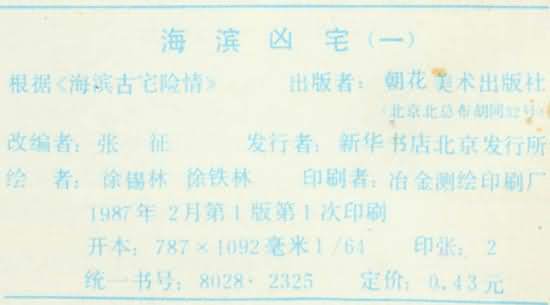 海滨凶宅(一)
根据《海滨古宅险情》 出版者：朝花美术出版社
(北京北总布胡同32号)
改编者：张 征 发行者：新华书店北京发行所
绘 者：徐锡林 徐铁林 印刷者：冶金测绘印刷厂
1987年 2月第1版第1次印刷
开本：787×1092毫米1/64 印张：2
统一书号：8028·2325 定价：0.43元